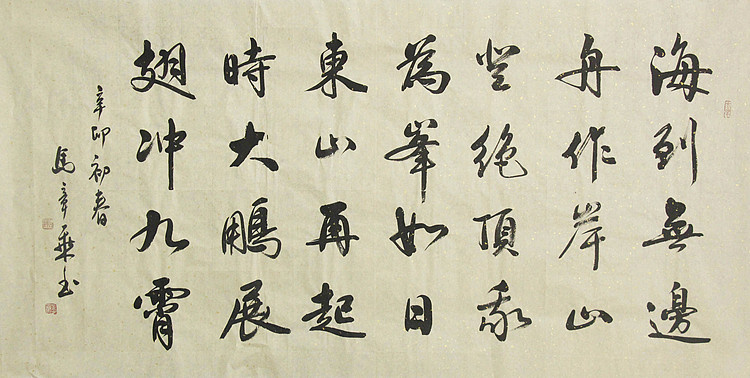 海到無邊
舟作岸山
登絶頂我
為峯如日
東山再起
時大鵬展
翅冲九霄
辛卯初春
馬章